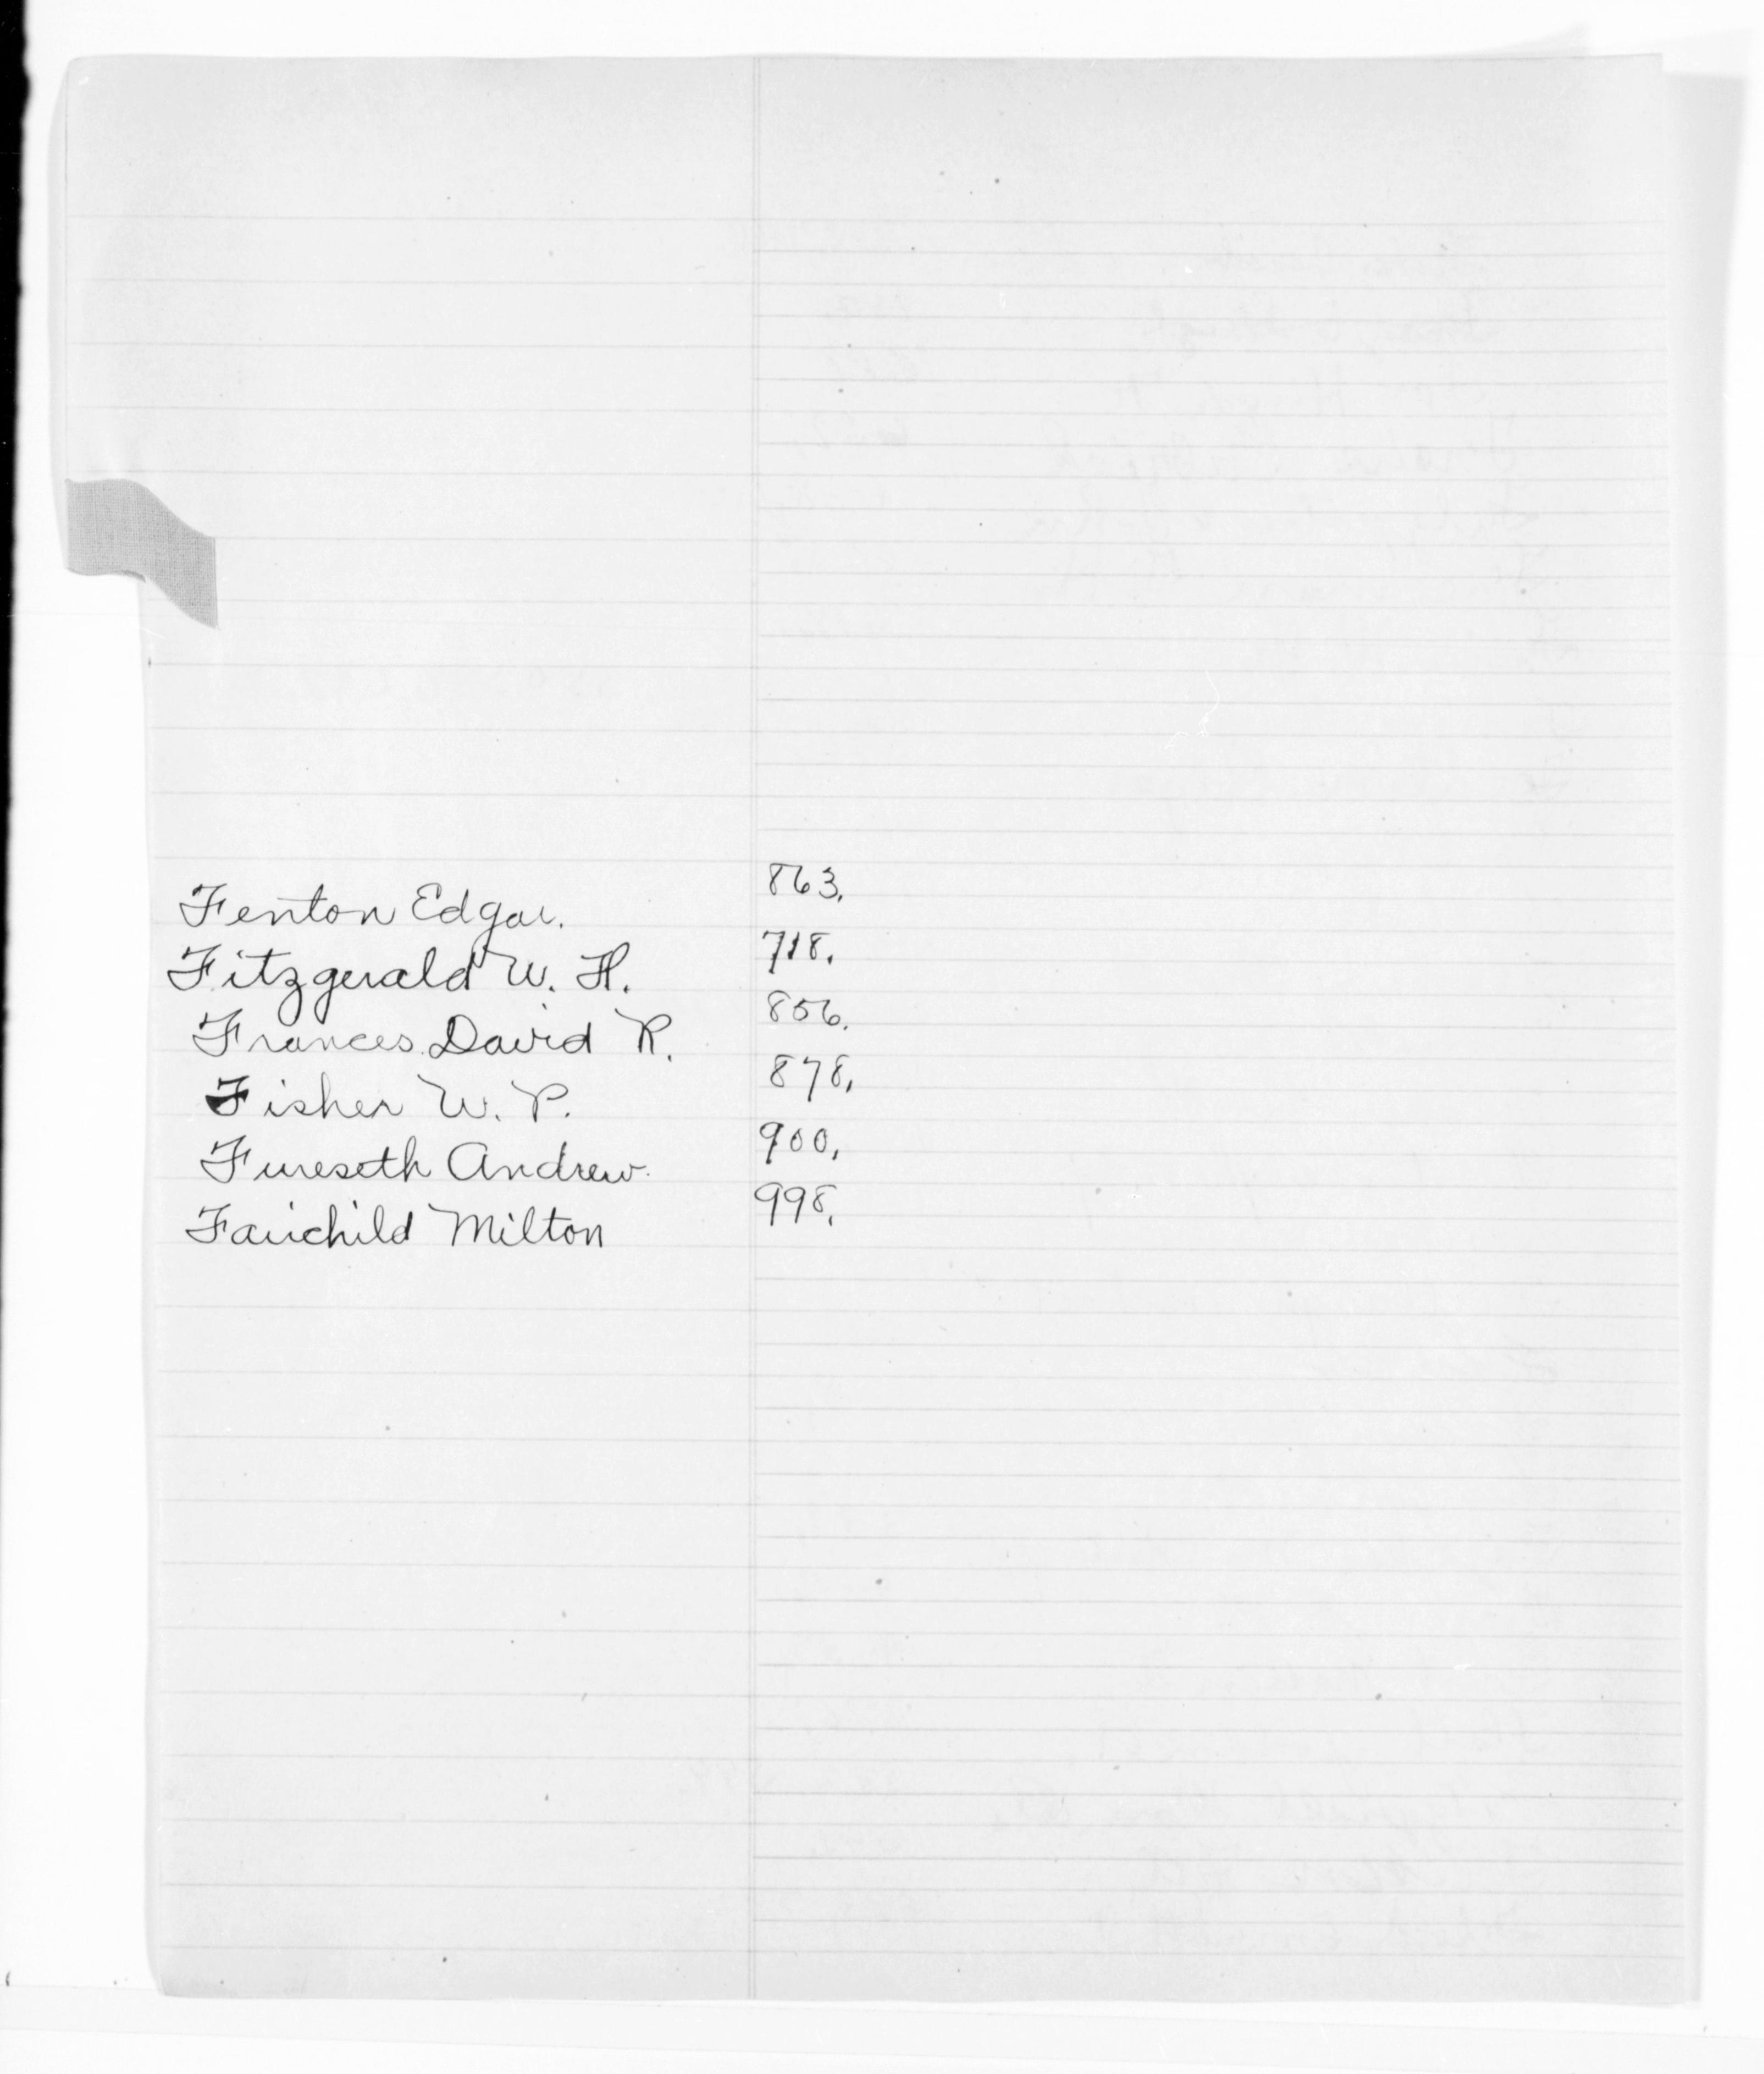 Fenton Edgar. 863.
Fitzgerald W. H. 718.
Frances David R. 856.
Fisher W. P. 878.
Fureseth Andrew. 900.
Fairchild Milton 998.